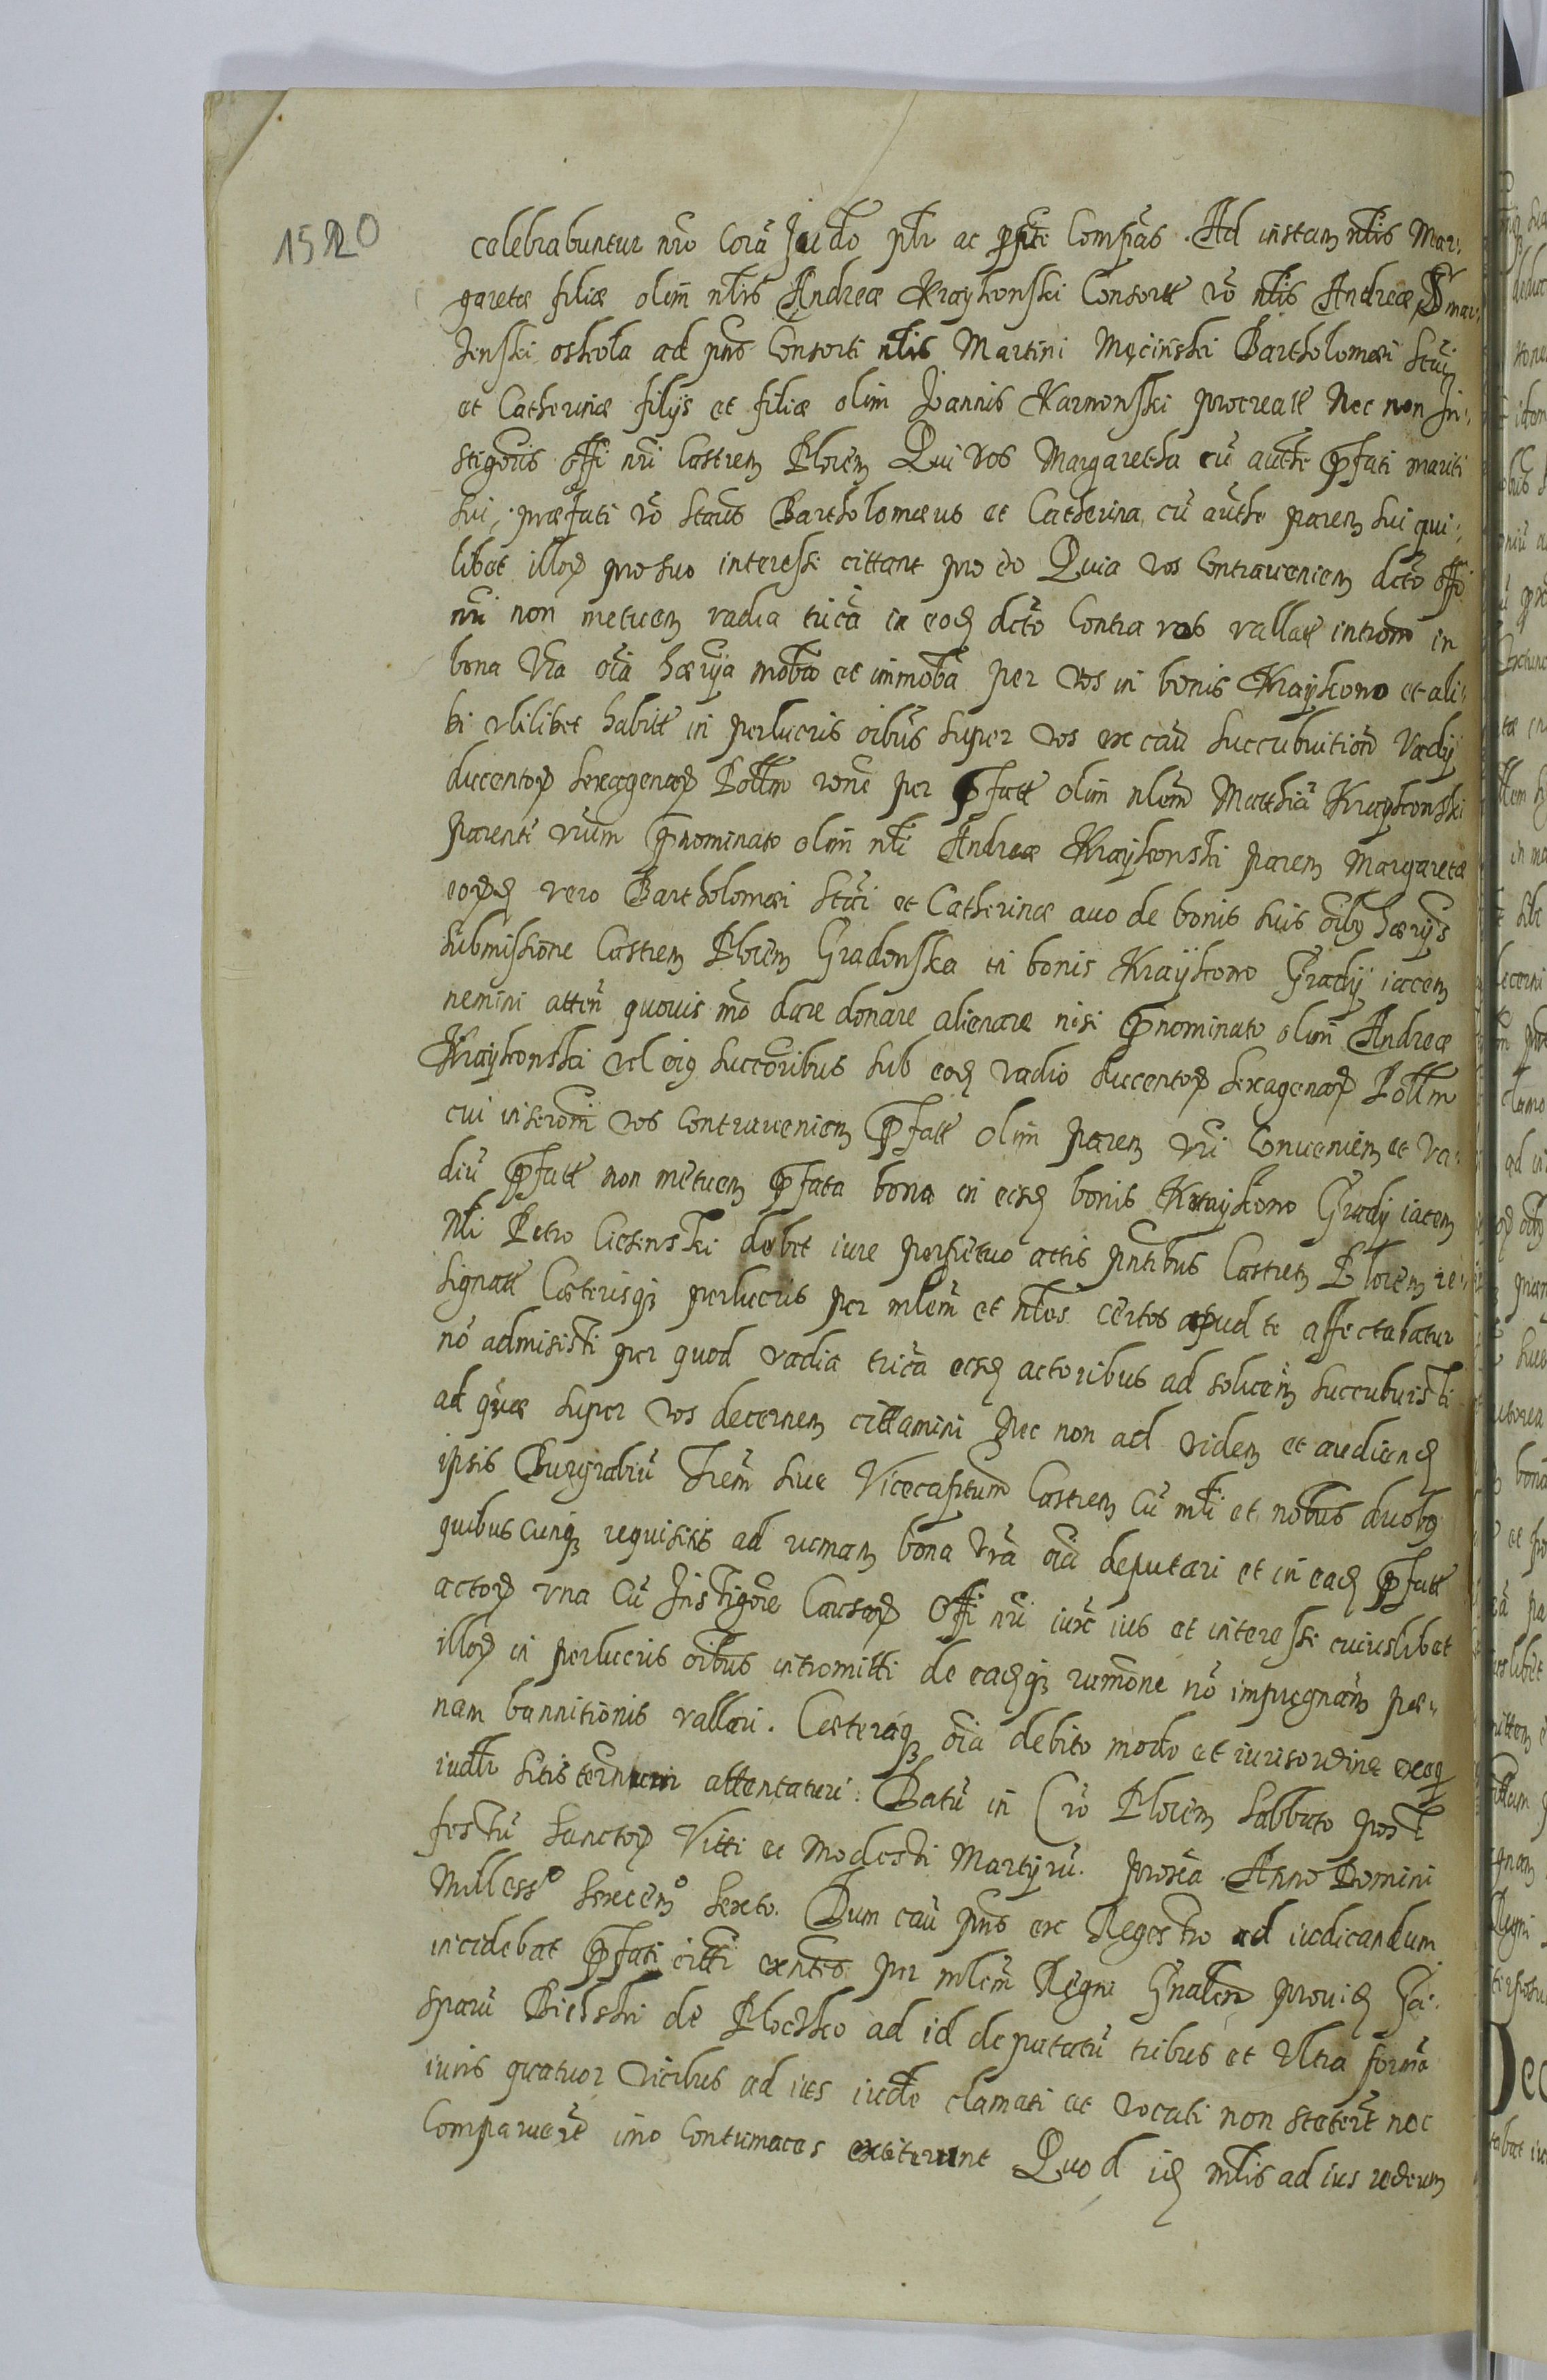 1520
celebrabuntur nr̃o Corã Judo ptr ac ppte Compras. Ad instam nlis Mar:
garetæ filiæ olim nlis Andreæ Kraykowski Consortt vo nlis Andreæ Smar:
Jewski oskola ad pns Consorti nlis Martini Męcinski Bartholomæi Stai
et Catherinæ filijs et filiæ olim Joannis Karnowski procreatt Nec non In:
stigoris offi nri Castrem Plocem Qui vos Margaretha cũ authte pfati mariti
sui, præfati vo Staus Bartholomæus et Catherina cũ authe parem sui qui:
libet illoꝝ pro suo interesse cittant pro eo Quia vos Contraueniem dcto offo
nri non metuem vadia tricã in eod dcto Contra vos vallatt introm in
bona Vra oia hæryã mobã et immobã per vos in bonis Kraykowo et ali:
bi vlilibet habitt in perlucris oibus super vos ex cau succubuition Vadij
ducentoꝝ sexagenaꝝ Pollm rone per pfatt olim nlem Matthiã Kraykowski
parente vrum pnominato olim nli Andreæ Kraykowski parem Margaretæ
eoꝝd vero Bartholomæi Stai et Catherinæ auo de bonis suis oiby hærijs
submissione Castrem Plocem Gradowska in bonis Kraykowo Grady iacem
nemini attin quouis mo dare donare alienare nisi pnominato olim Andreæ
Kraykowski vel eiꝰ succoribus sub eod vadio ducentoꝝ sexagenaꝝ Pollm
cui inscrom vos contraueniem pfatt olim parem vri Conueniem et va:
diũ pfatt non metuem pfata bona in eisd bonis Kraykowo Grady iacem
Nli Petro Ciesinski debet iure perpetuo actis pntibus Castrem Plocem re:
signatt Cæterisqꝫ perlucris per mlem et nlos certos apud te affectabatur
nõ admisisti per quod vadia tricã eisd actoribus ad solucem succubuisti
ad quæ super vos decernem cittamini Nec non ad videm et audiend
ipsis Burgrabiũ Trem siue Vicecapitum Castrem Cũ mli et nobus duobꝰ
quibuscunqꝫ requisitis ad rumam bona Vrã oia deputari et in ead pfatt
actoꝝ vna Cũ Instigore Causaꝝ Offi nri iuxc ius et interesse cuiuslibet
illoꝝ in perlucris oibus intromitti de eadqꝫ rumone nõ impugnam pæ:
nam bannitionis vallari. Cæteraqꝫ oia debito modo et iurisordine exeq
iudli sitis ternum attentaturi. Datũ in Cro Plocem Sabbato post
festũ Sanctoꝝ Vitti et Modesti Martyrũ. proxia Anno Domini
Millessº Sexcemº Sexto. Dum cau pns ex Regestro ad iudicandum
incidebat pfati citti exntes per mlem Regni Gnalem prouid Ga:
sparũ Bielski de Plocsko ad id deputatũ tribus et Vltra formã
iuris quatuor vicibus ad ius iudle clamati et vocati non stetert nec
Comparuert imo Contumaces extiterunt Quod id mlis ad ius redeum